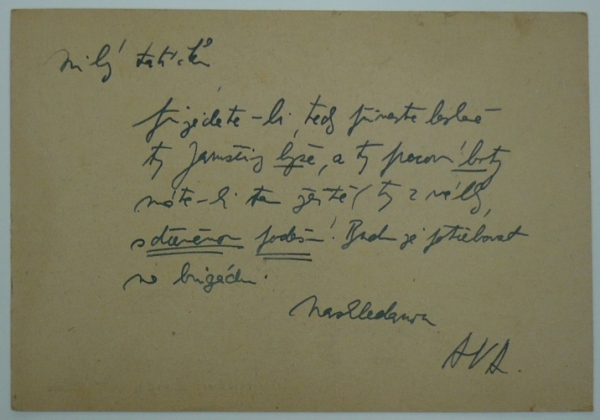 milý tatíčku
přijedete-li, tedy přivezte laskavě
ty lyže, a ty pracovní boty
máte-li tam ještě (ty z války,
s dřevěnou podešví! Budu je potřebovat
na brigádu.
Nashledanou
AVA.